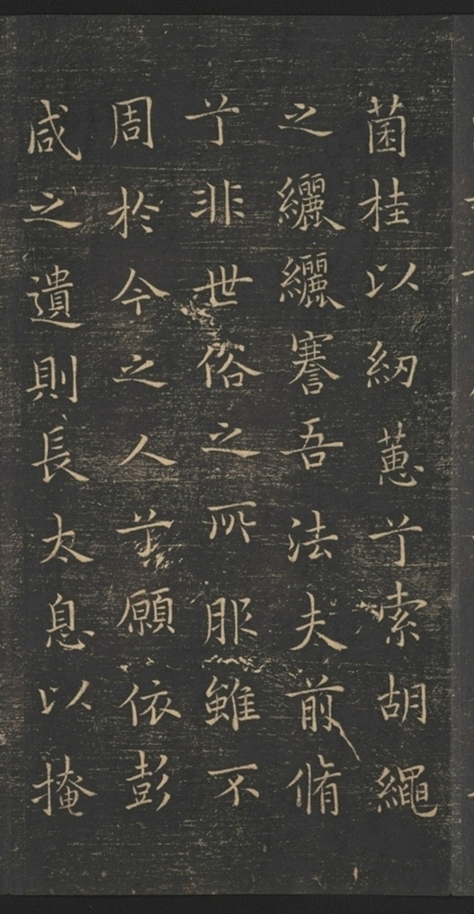 菌桂以紉蕙兮索胡繩
之纚纚謇吾法夫前脩
兮非世俗之所服雖不
周於今之人兮願依彭
咸之遺則長太息以掩